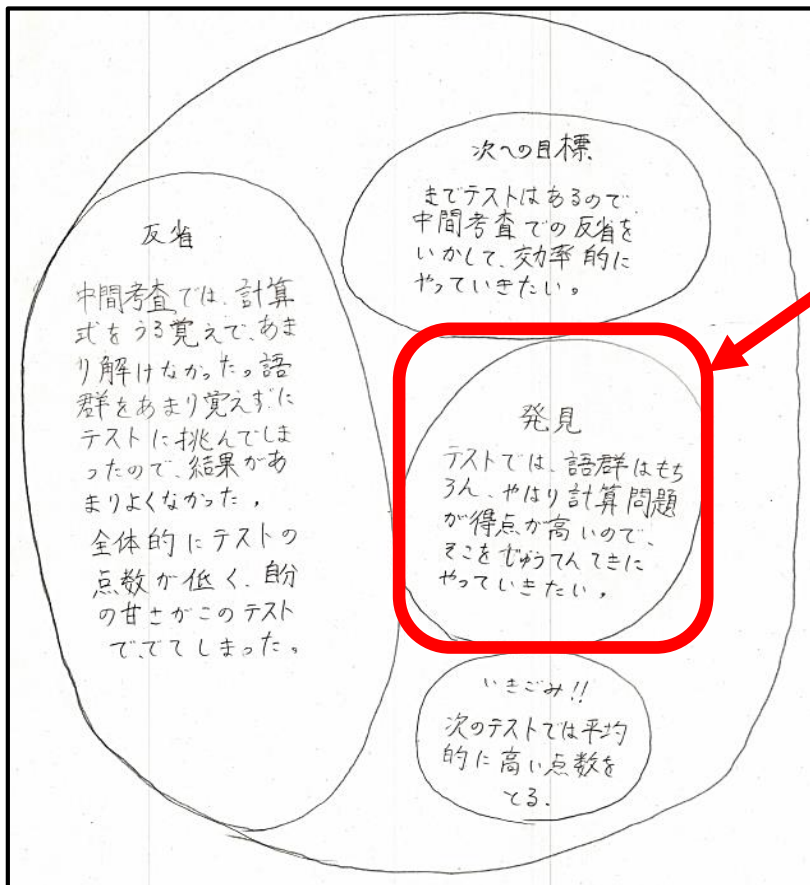 反省
中間考査では、計算
式をうる覚えで、あま
り解けなかった。語
群をあまり覚えずに
テストに挑んでしま
ったので、結果があ
まりよくなかった。
全体的にテストの
点数が低く、自分
の甘さがこのテスト
で、でてしまった。
次への目標
までテストはあるので
中間考査での反省を
いかして、効率的に
やっていきたい。
発見
テストでは、語群はもち
ろん、やはり計算問題
が得点が高いので、
そこをじゅうてんてきに
やっていきたい。
いきごみ!!
次のテストでは平均
的に高い点数を
とる.